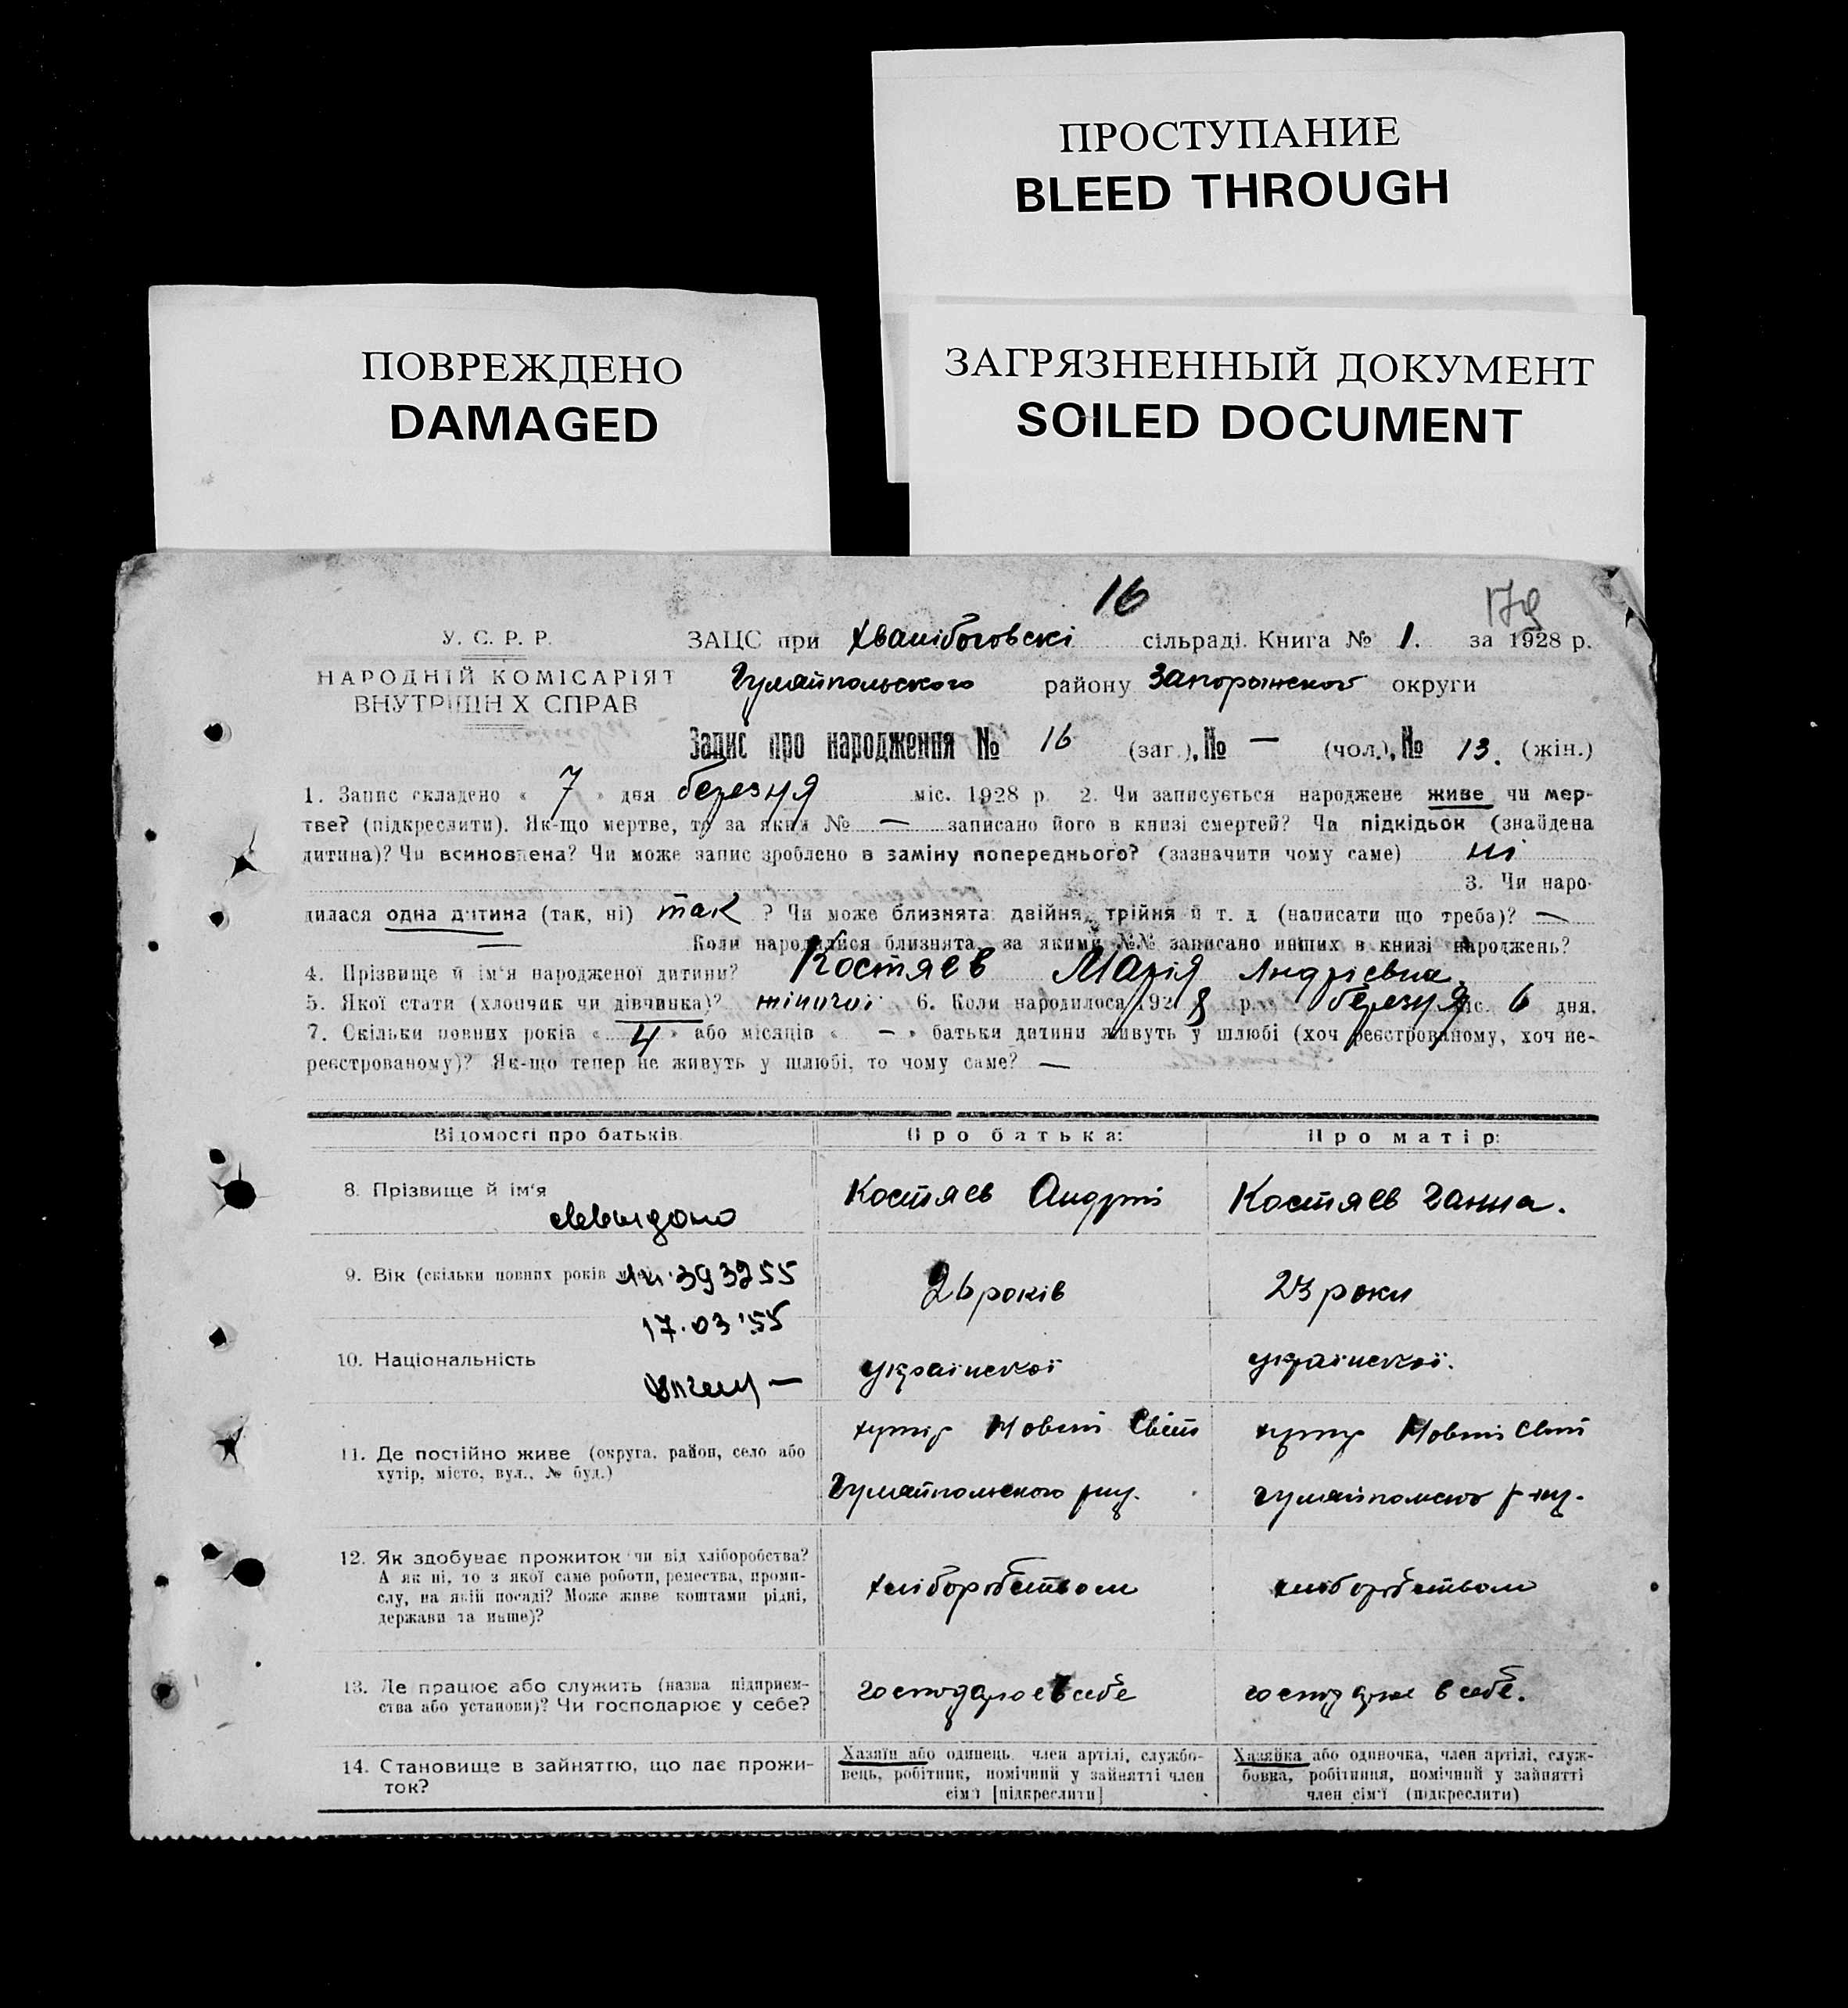 ПРОСТУПАНИЕ
BLEED THROUGH
ПОВРЕЖДЕНО
DAMAGED
ЗАГРЯЗНЕННЫЙ ДОКУМЕНТ
SOILED DOCUMENT
16
179
У. С. Р. Р.
НАРОДНІЙ КОМІСАРІЯТ
ВНУТРІШНІХ СПРАВ
ЗАЦС при Хвалібоговскі сільраді. Книга № 1. за 1928 р.
Гуляйпольського району Запорыжской округи
Запис про народження № 16 (заг.), № — (чол.), № 13. (жін.)
1. Запис складено « 7 » дня березня міс. 1928 р. 2. Чи записується народжене живе чи мер-
тве? (підкреслити). Як-що мертве, то за яким № — записано його в книзі смертей? Чи підкідьок (знайдена
дитина)? Чи всиновлена? Чи може запис зроблено в заміну попереднього? (зазначити чому саме) ні
3. Чи наро-
дилася одна дитина (так, ні) так ? Чи може близнята: двійня, трійня й т. д. (написати що треба)? —
Коли народилися близнята, за якими №№ записано инших в книзі народжень?
4. Прізвище й ім'я народженої дитини? Костяев Марія Андріевна.
5. Якої стати (хлопчик чи дівчинка)? жіночої 6. Коли народилося 1928 р. березня міс. 6 дня.
7. Скільки повних років « 4 » або місяців « — » батьки дитини живуть у шлюбі (хоч реєстрованому, хоч не-
реєстрованому)? Як-що тепер не живуть у шлюбі, то чому саме? —
Відомості про батьків. Про батька: Про матір:
8. Прізвище й ім'я Костяев Андрій Костяев Ганна.
9. Вік (скільки повних років 393255 26 років 23 роки
17.03.55
10. Національність українскої українскої.
11. Де постійно живе (округа, район, село або хутір, місто, вул., № буд.)
хутір Новий Світ хутір Новий Світ
Гуляйпольського рну. Гуляйпольского р-ну.
12. Як здобуває прожиток чи від хліборобства?
А як ні, то з якої саме роботи, ремества, проми-
слу, на якій посаді? Може живе коштами рідні,
держави та инше)?
хліборобством хліборобством
13. Де працює або служить (назва підприєм-
ства або установи)? Чи господарює у себе?
господарює в себе господарює в себе.
14. Становище в зайняттю, що дає прожи-
ток?
Хазяїн або одинець, член артілі, службо-
вець, робітник, помічний у зайнятті член
сім'ї [підкреслити]
Хазяйка або одиночка, член артілі, служ-
бовка, робітниця, помічний у зайнятті
член сім'ї (підкреслити)